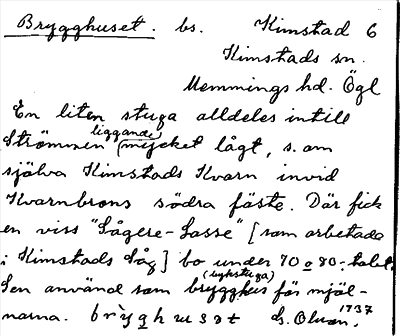 Brygghuset. bs. Kimstad 6
Kimstads sn.
Memmings hd. Ögl
En liten stuga alldeles intill
Strömmen (liggande) mycket lågt, s.om
själva Kimstads Kvarn invid
Kvarnbrons södra fäste. Där fick
en viss "Sågere-Lasse" [som arbetade
i Kimstads Såg] bo under 70 o 80-talet.
Sen använd som brygghus (bykstuga) för mjöl-
narna. brỳghusat
1737